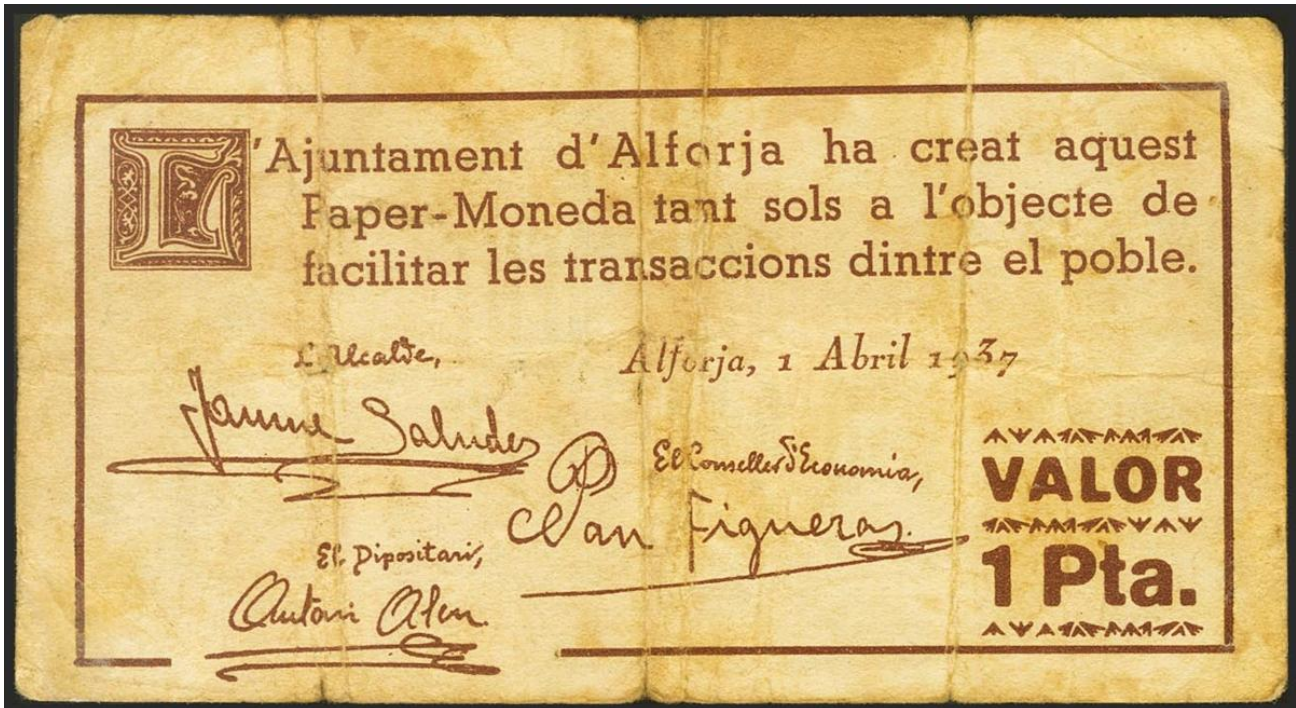 L'Ajuntament d'Alforja ha creat aquest
Paper-Moneda tant sols a l'objecte de
facilitar les transaccions dintre el poble.
L'Alcalde,
Alforja, 1 Abril 1937
Jaume Saludes
El Conseller d'Economia,
Pau Figueras
El Dipositari,
Antoni Aleu
VALOR
1 Pta.